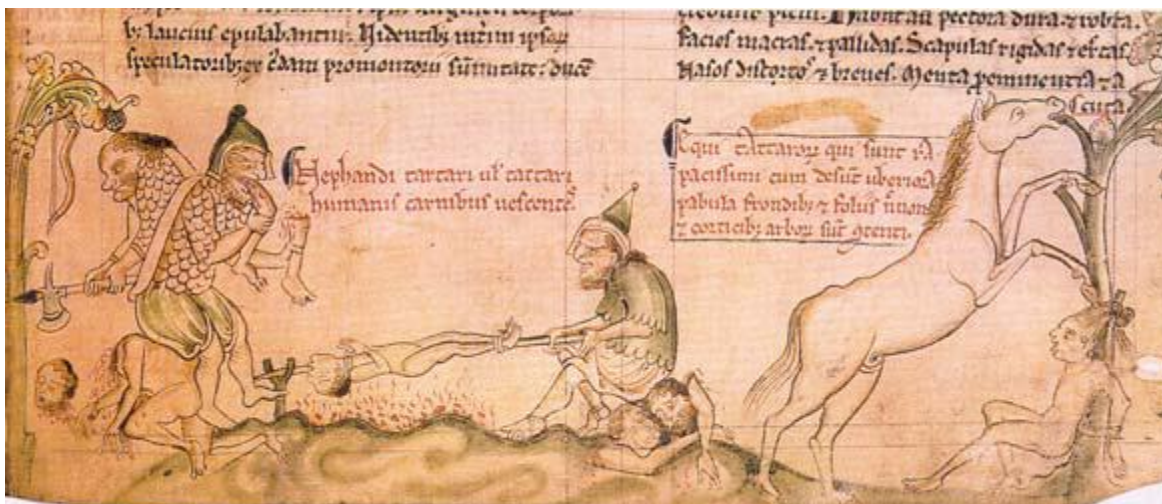 b; laucius epulabantur. Videntib; ipsoꝝ
speculatorib; ex promontorii sūmitate: ducē
Habent aū pectora dura. ⁊ robta.
facies macras. ⁊ pallidas. Scapulas rigidas ⁊ erctas.
Nasos distorto⁹ ⁊ breues. Menta p̄eminentia ⁊ a
cuta.
Nephandi tartari ul' tattari
humanis carnibus uescentes.
Equi tattaroꝝ qui sunt ra
pacissimi cum desūt uberiora
pabula frondib; ⁊ foliis n̄non
⁊ corticib; arboꝝ sūt ɔtenti.